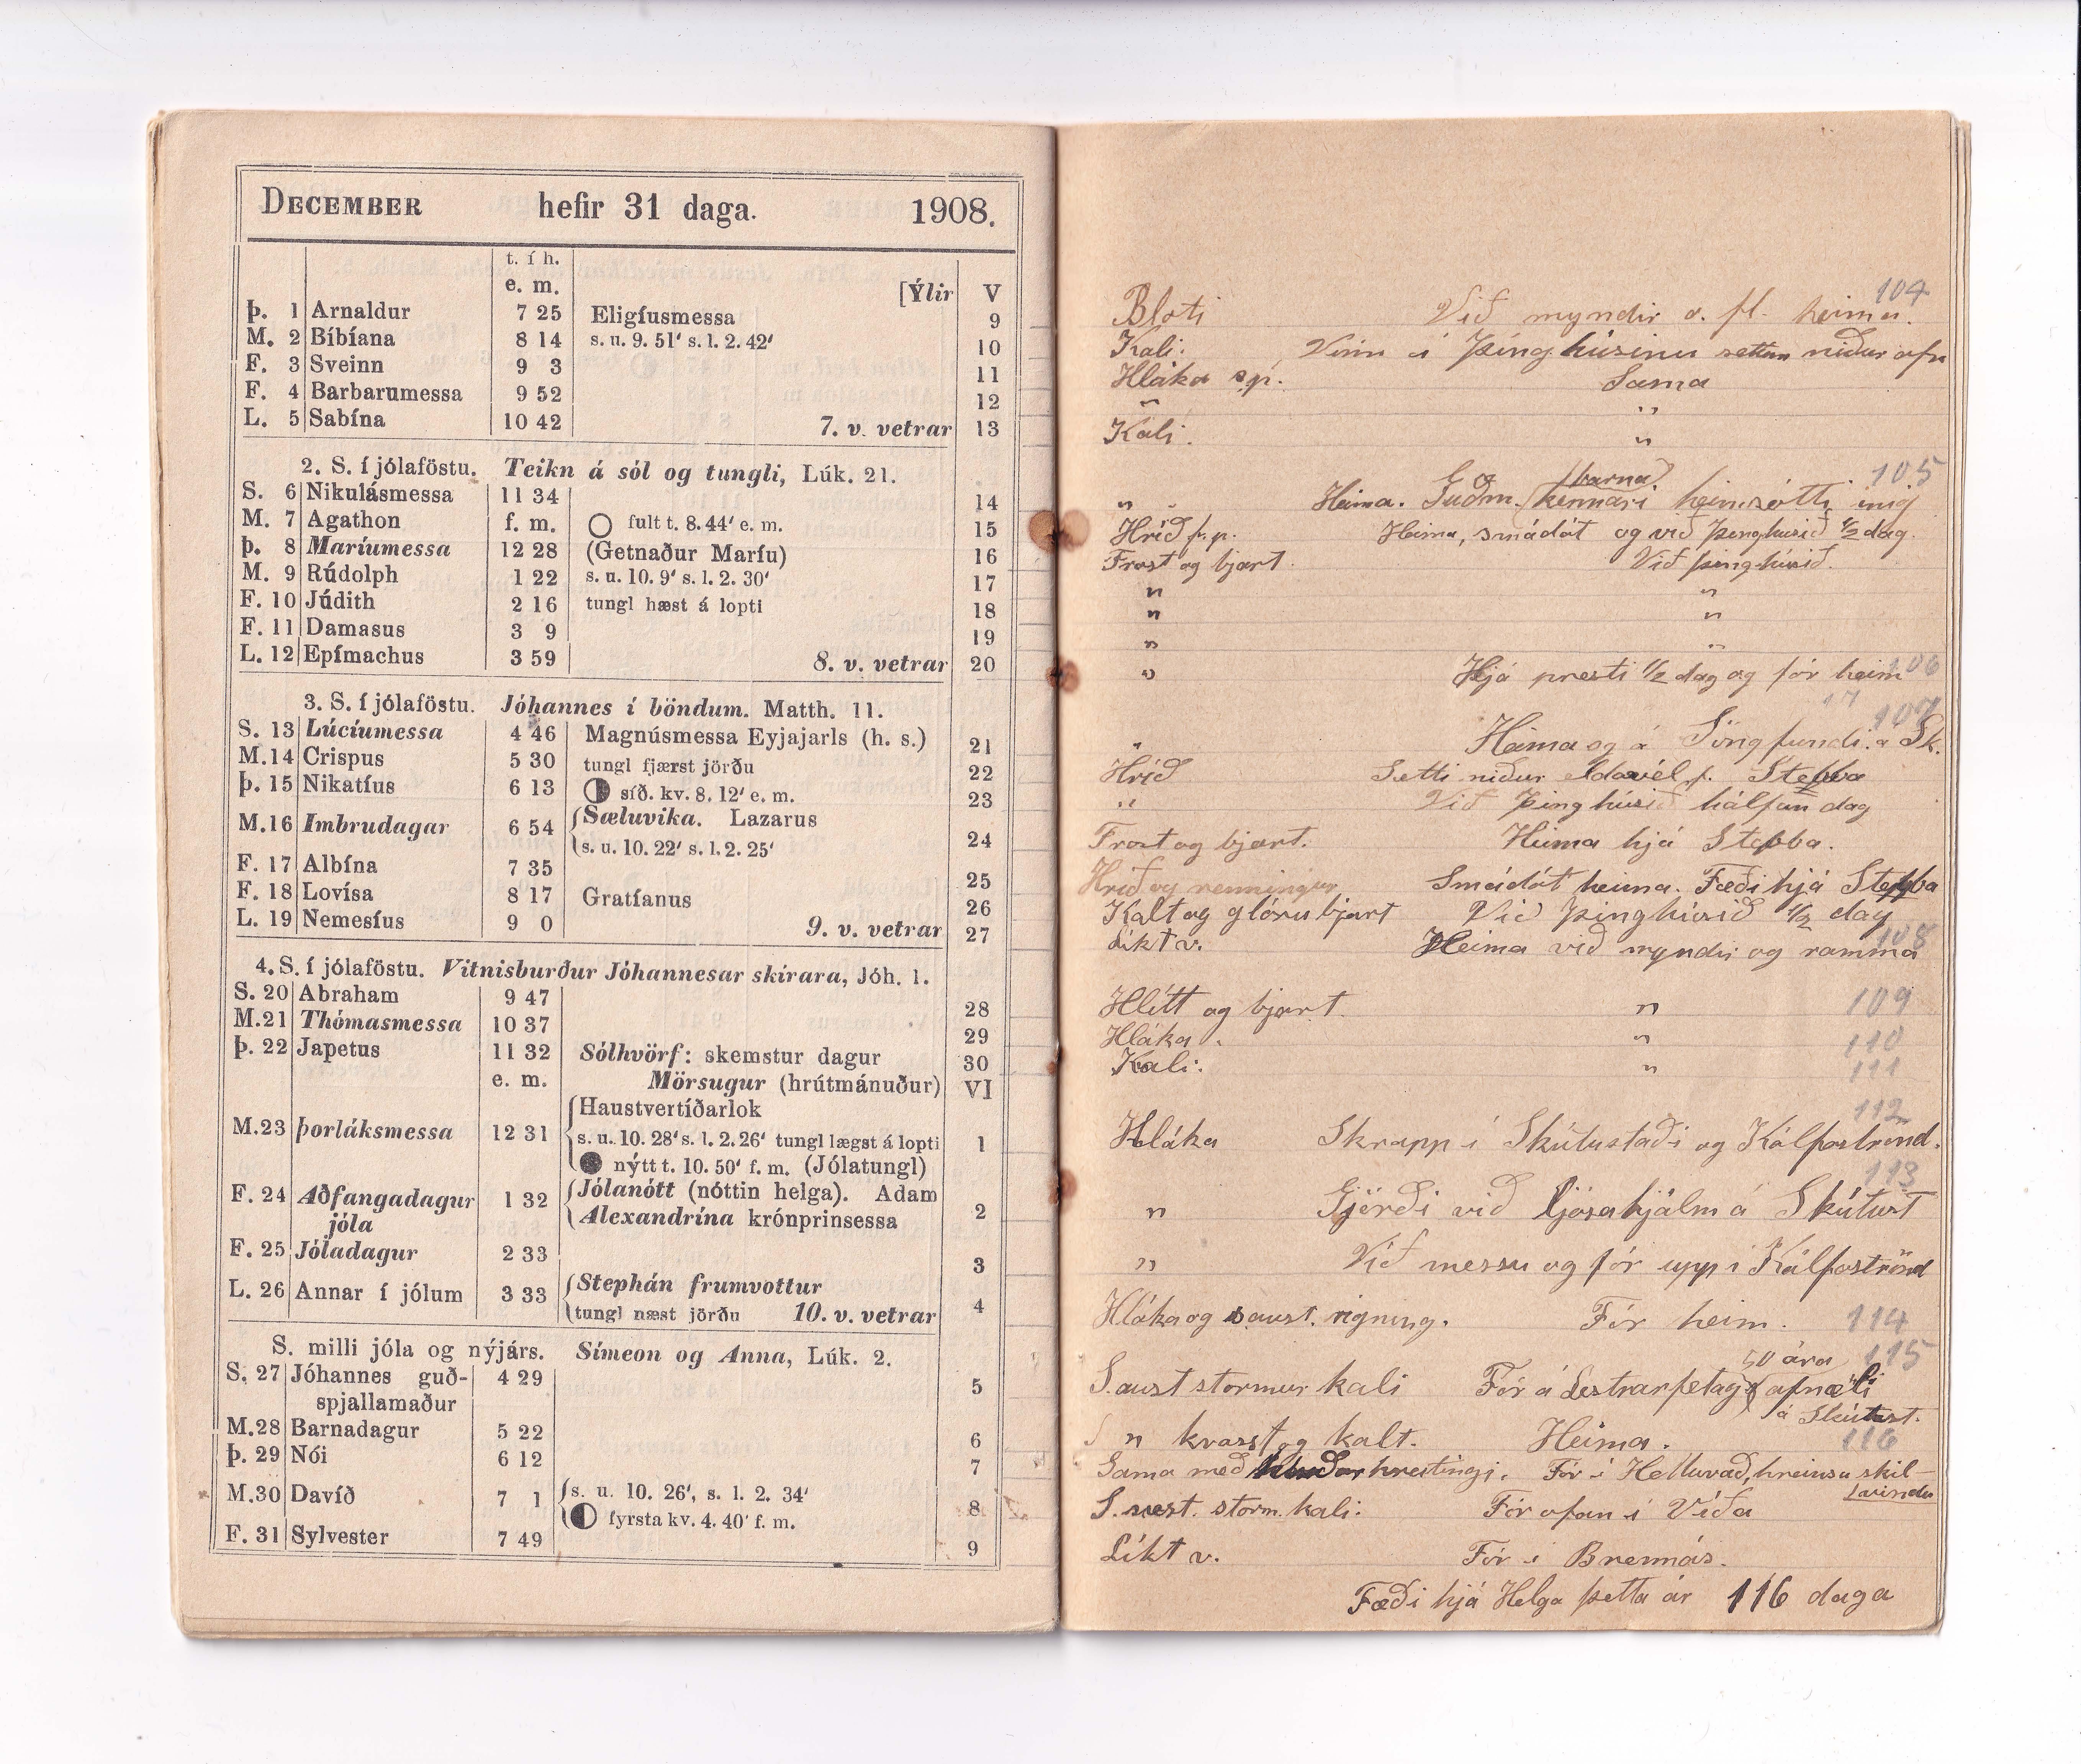 DECEMBER hefir 31 daga. 1908.
t. í h.
e. m. [Ýlir V
Þ. 1 Arnaldur 7 25 Eligíusmessa 9
M. 2 Bíbíana 8 14 s. u. 9. 51' s. l. 2. 42' 10
F. 3 Sveinn 9 3 11
F. 4 Barbarumessa 9 52 12
L. 5 Sabína 10 42 7. v. vetrar 13
2. S. í jólaföstu. Teikn á sól og tungli, Lúk. 21.
S. 6 Nikulásmessa 11 34 14
M. 7 Agathon f. m. fult t. 8. 44' e. m. 15
Þ. 8 Maríumessa 12 28 (Getnaður Maríu) 16
M. 9 Rúdolph 1 22 s. u. 10. 9' s. l. 2. 30' 17
F. 10 Júdith 2 16 tungl hæst á lopti 18
F. 11 Damasus 3 9 19
L. 12 Epímachus 3 59 8. v. vetrar 20
3. S. í jólaföstu. Jóhannes í böndum. Matth. 11.
S. 13 Lúcíumessa 4 46 Magnúsmessa Eyjajarls (h. s.) 21
M. 14 Crispus 5 30 tungl fjærst jörðu 22
Þ. 15 Nikatíus 6 13 síð. kv. 8. 12' e. m. 23
M. 16 Imbrudagar 6 54 Sæluvika. Lazarus
s. u. 10. 22' s. l. 2. 25' 24
F. 17 Albína 7 35 25
F. 18 Lovísa 8 17 Gratíanus 26
L. 19 Nemesíus 9 0 9. v. vetrar 27
4. S. í jólaföstu. Vitnisburður Jóhannesar skírara, Jóh. 1.
S. 20 Abraham 9 47 28
M. 21 Thómasmessa 10 37 29
Þ. 22 Japetus 11 32 Sólhvörf: skemstur dagur 30
e. m. Mörsugur (hrútmánuður) VI
Haustvertíðarlok
M. 23 Þorláksmessa 12 31 s. u. 10. 28' s. l. 2. 26' tungl lægst á lopti 1
nýtt t. 10. 50' f. m. (Jólatungl)
F. 24 Aðfangadagur 1 32 Jólanótt (nóttin helga). Adam 2
jóla Alexandrína krónprinsessa
F. 25 Jóladagur 2 33 3
L. 26 Annar í jólum 3 33 Stephán frumvottur 4
tungl næst jörðu 10. v. vetrar
S. milli jóla og nýjárs. Símeon og Anna, Lúk. 2.
S. 27 Jóhannes guð- 4 29 5
spjallamaður
M. 28 Barnadagur 5 22 6
Þ. 29 Nói 6 12 7
M. 30 Davíð 7 1 s. u. 10. 26', s. l. 2. 34' 8
fyrsta kv. 4. 40' f. m.
F. 31 Sylvester 7 49 9
104
Bloti Við myndir o. fl. heima.
Kali. Vinn í Þinghúsinu settum niður ofn
Hláka s.p. Sama
" "
Kali. "
og barna 105
" Heima. Guðm. kennari heimsótti mig
Hríð f.p. Heima, smádót og við Þinghúsið 1/2 dag.
Frost og bjart. Við þinghúsið.
" "
" "
" "
" Hjá presti 1/2 dag og fór heim 106
17 107
" Heima og á Söngfundi á Sk.
Hríð Setti niður eldavél f. Stebba
" Við Þinghúsið hálfan dag
Frost og bjart. Heima hjá Stebba.
Hríð og renningur Smádót heima. Fæði hjá Stebba
Kalt og glórubjart Við Þinghúsið 1/2 dag
Líkt v. Heima við myndir og ramma 108
Hlítt og bjart. " 109
Hláka. " 110
Kali. " 111
112
Hláka Skrapp í Skútustaði og Kálfaströnd.
113
" Gjörði við ljósahjálm á Skútust
" Við messu og fór upp í Kálfaströnd
Hláka og s aust. rigning. Fór heim. 114
50 ára 115
S.aust stormur kali Fór á Lestrarfélags afmæli
á Skútust.
" kvasst og kalt. Heima. 116
Sama með hreitingi. Fór í Helluvað, hreinsa skil-
vindu
S.vest. storm. kali. Fór ofan í Víða
Líkt v. Fór í Brennás.
Fæði hjá Helga þetta ár 116 daga